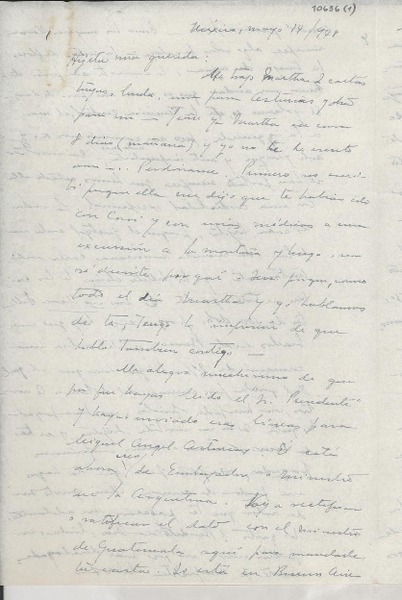 10636 (1)
1
mayo 14/948
mía querida:
Me trajo Martha 2 cartas
tuyas, linda, una para Asturias y otra
para mí — Tiene ya Martha en casa
8 días (mañana) y yo no te he escrito
aún... Perdóname. Primero no escri-
bí porque ella me dijo que te habías ido
con Coni y con unos médicos a una
excursión a la montaña y luego, no
sé decirte por qué. Será porque, como
todo el día Martha y yo hablamos
de ti, tengo la ilusión de que
hablo también contigo. —
Me alegra muchísimo de que
por fin hayas leído el Sr. Presidente
y hayas enviado esas líneas para
Miguel Angel Asturias. El está
ahora creo de Embajador o Ministro
en la Argentina. Voy a rectificar
o ratificar el dato con el Ministro
de Guatemala aquí para mandarle
tu carta. Si está en Buenos Aires